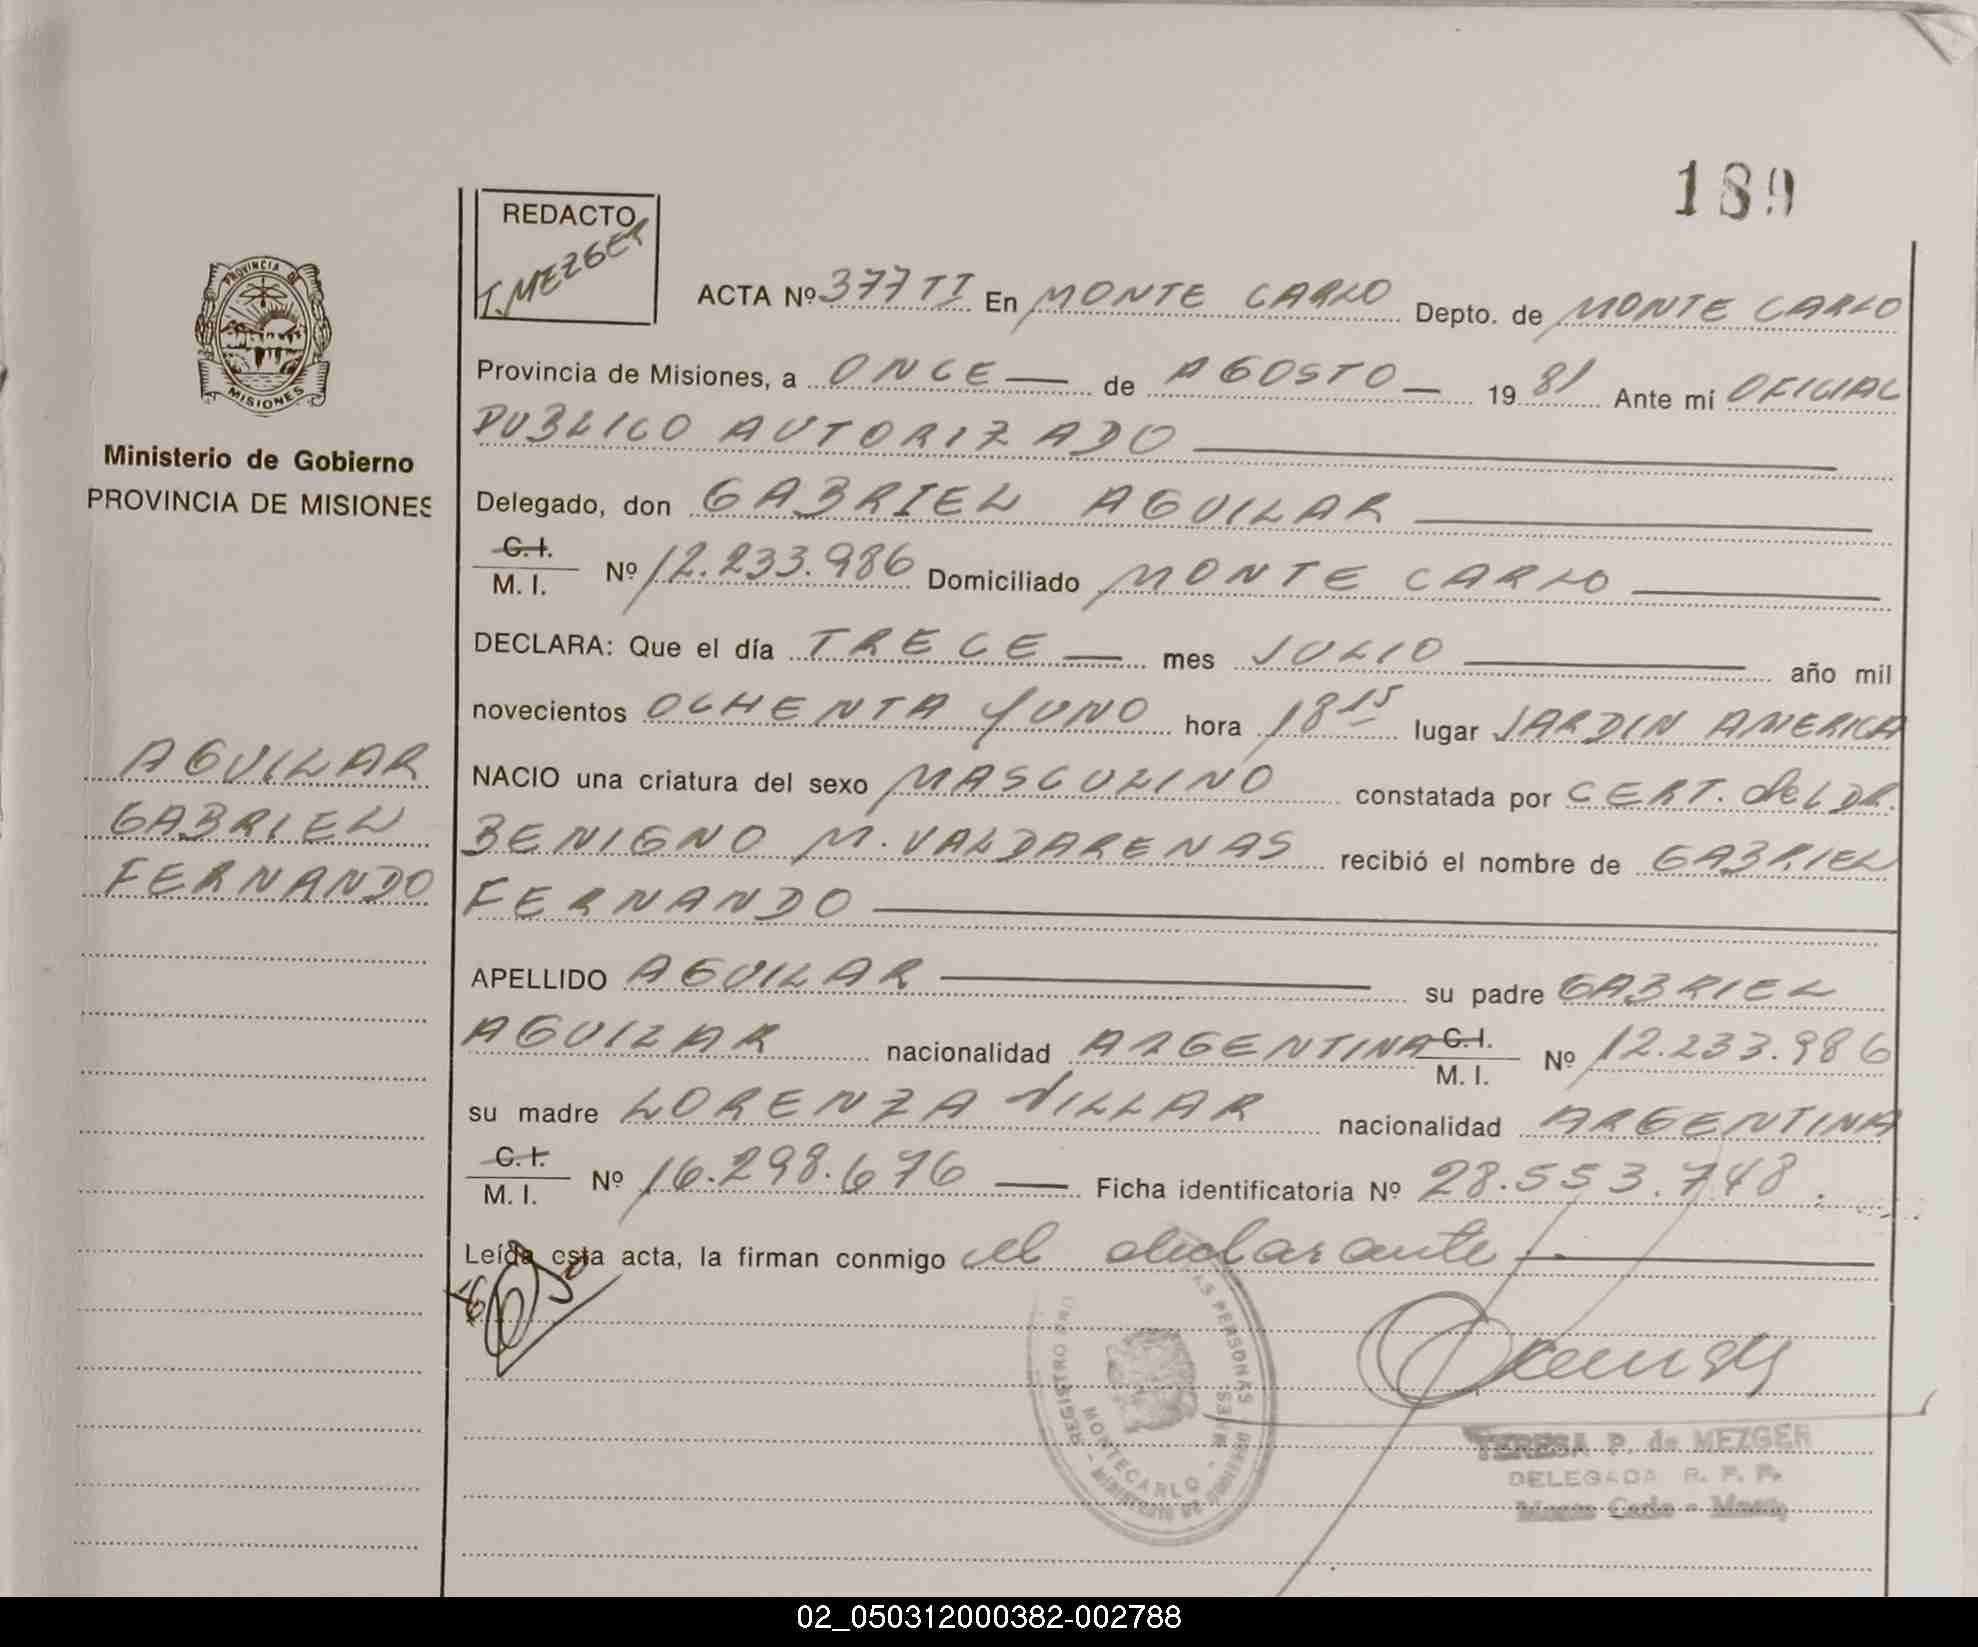 189
REDACTO
T. MEZGER
PROVINCIA DE
MISIONES
Ministerio de Gobierno
PROVINCIA DE MISIONES
ACTA Nº 377 TI En MONTE CARLO Depto. de MONTE CARLO
Provincia de Misiones, a ONCE — de AGOSTO — 19 81 Ante mi OFICIAL
PUBLICO AUTORIZADO
Delegado, don GABRIEL AGUILAR
C. I.
M. I. Nº 12.233.986 Domiciliado MONTE CARLO
DECLARA: Que el día TRECE — mes JULIO — año mil
novecientos OCHENTA Y UNO hora 18 15 lugar JARDIN AMERICA
NACIO una criatura del sexo MASCULINO constatada por CERT. del DR.
BENIGNO M. VALDARENAS recibió el nombre de GABRIEL
FERNANDO
AGUILAR
GABRIEL
FERNANDO
APELLIDO AGUILAR su padre GABRIEL
AGUILAR nacionalidad ARGENTINA C. I. M. I. Nº 12.233.986
su madre LORENZA VILLAR nacionalidad ARGENTINA
C. I.
M. I. Nº 16.298.676 — Ficha identificatoria Nº 28.553.748.
Leída esta acta, la firman conmigo el declarante
MONTECARLO
TERESA P. de MEZGER
DELEGADA R. P. P.
Monte Carlo - Mnes.
02_050312000382-002788